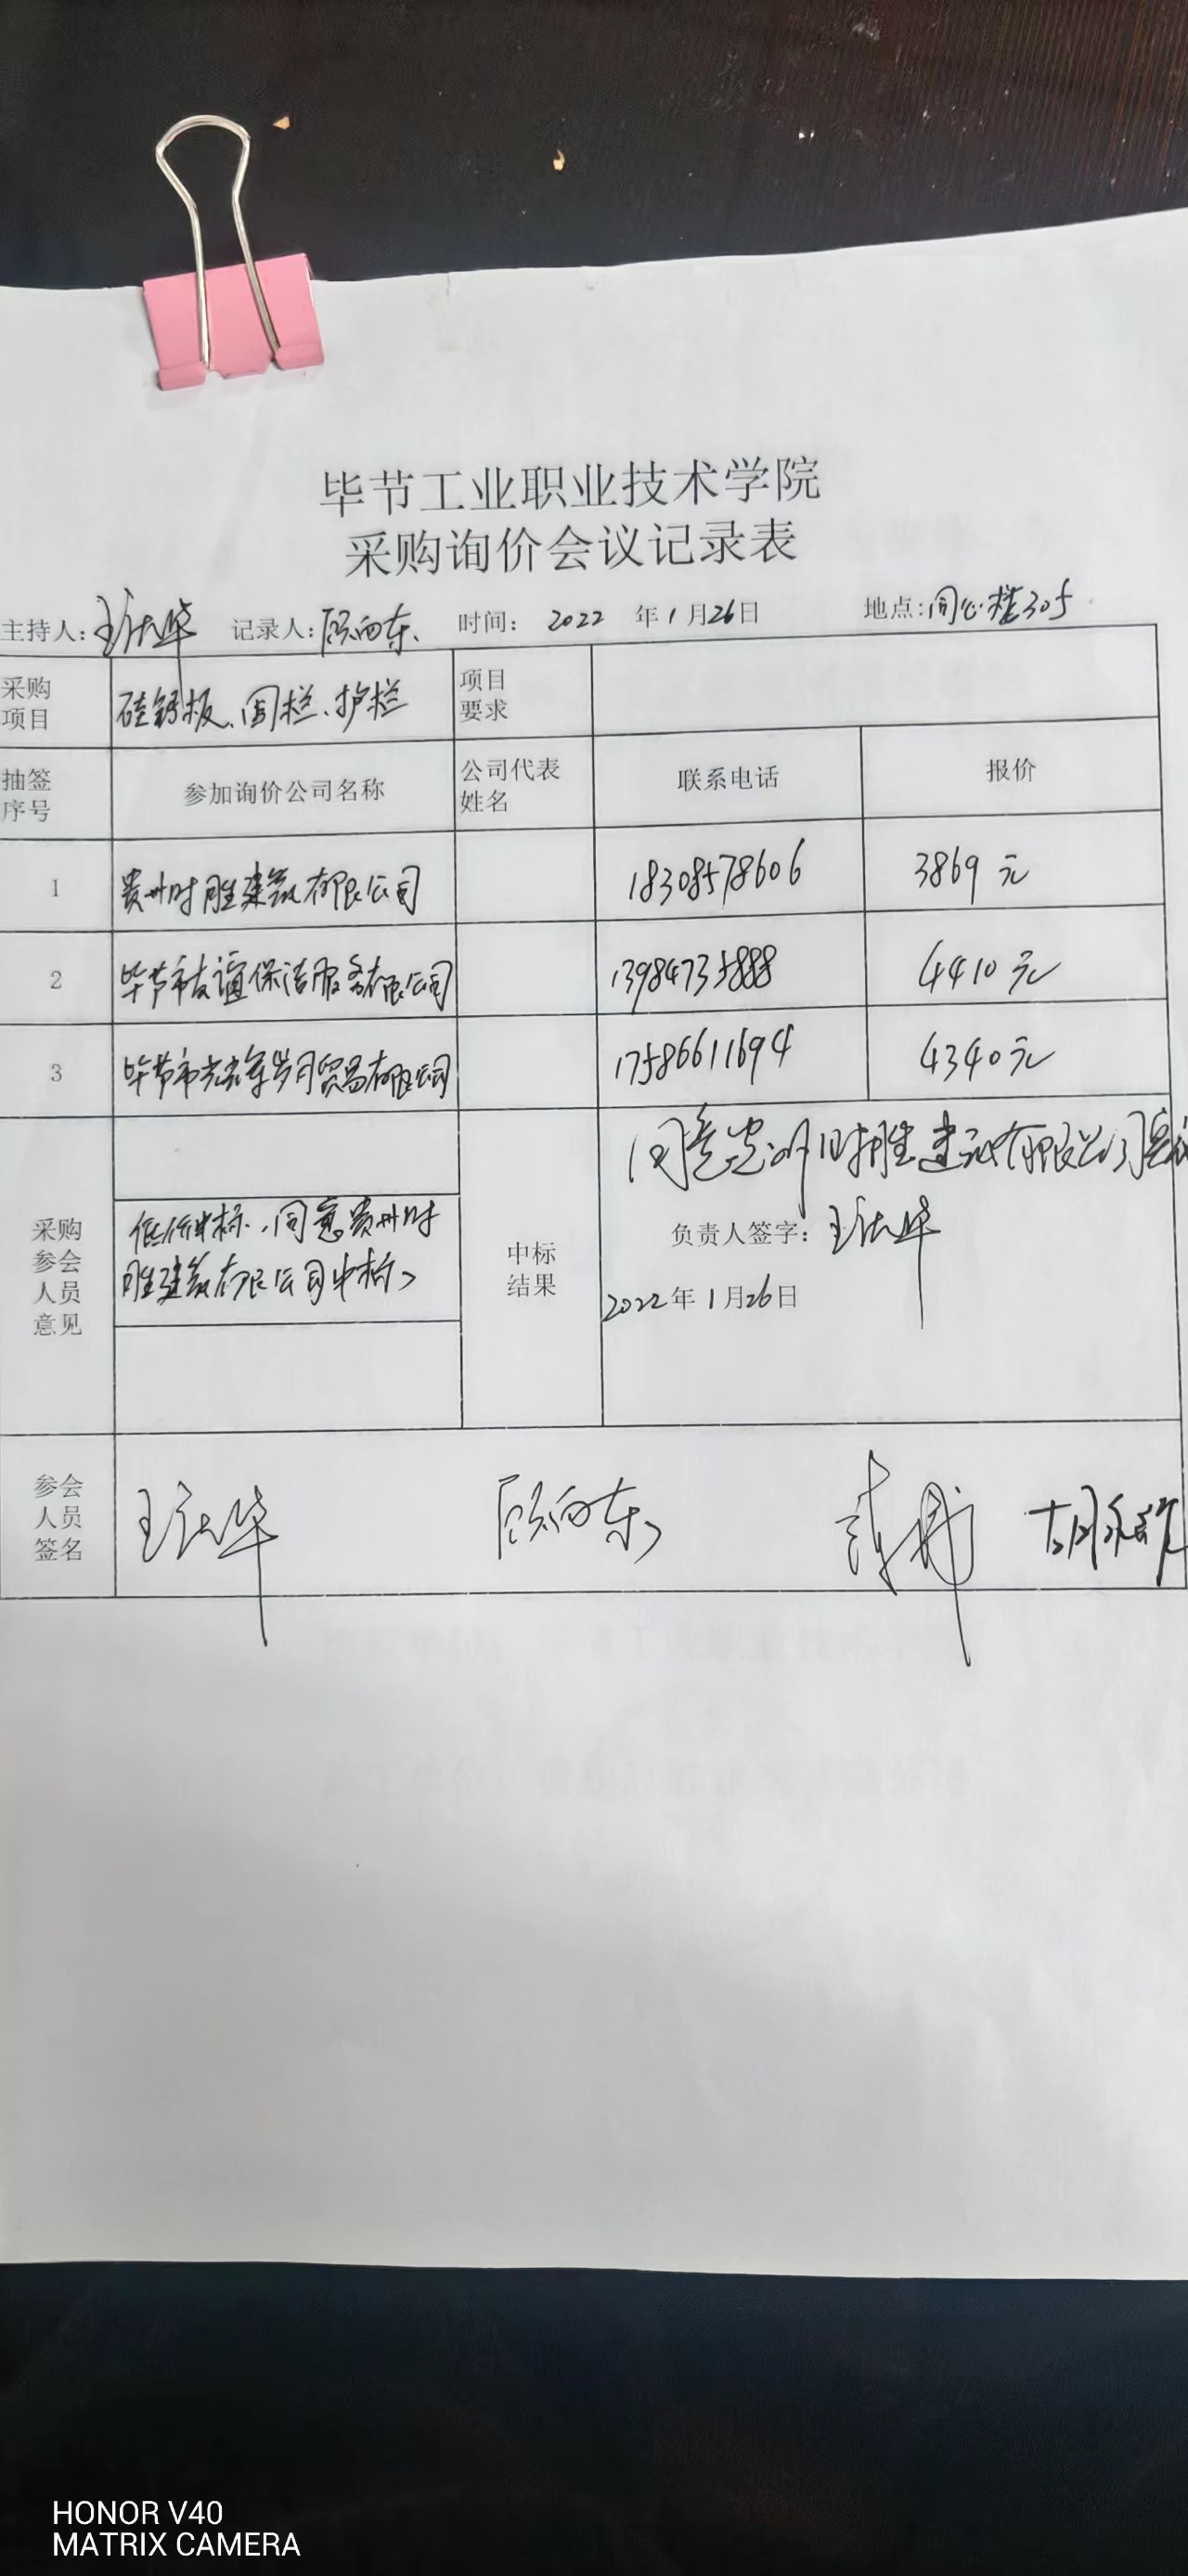 毕节工业职业技术学院
采购询价会议记录表
主持人: 记录人:顾向东 时间: 2022 年1月26日 地点:同心楼305
采购项目 硅钙板、围栏、护栏 项目要求
抽签序号 参加询价公司名称 公司代表姓名 联系电话 报价
1 贵州时胜建筑有限公司 18308578606 3869元
2 毕节市友谊保洁服务有限公司 13984735888 4410元
3 毕节市 岁月贸易有限公司 17586611694 4340元
采购参会人员意见
低价中标,同意贵州时
胜建筑有限公司中标
中标结果
同意贵州时胜建筑有限公司
负责人签字:
2022年1月26日
参会人员签名 顾向东
HONOR V40
MATRIX CAMERA